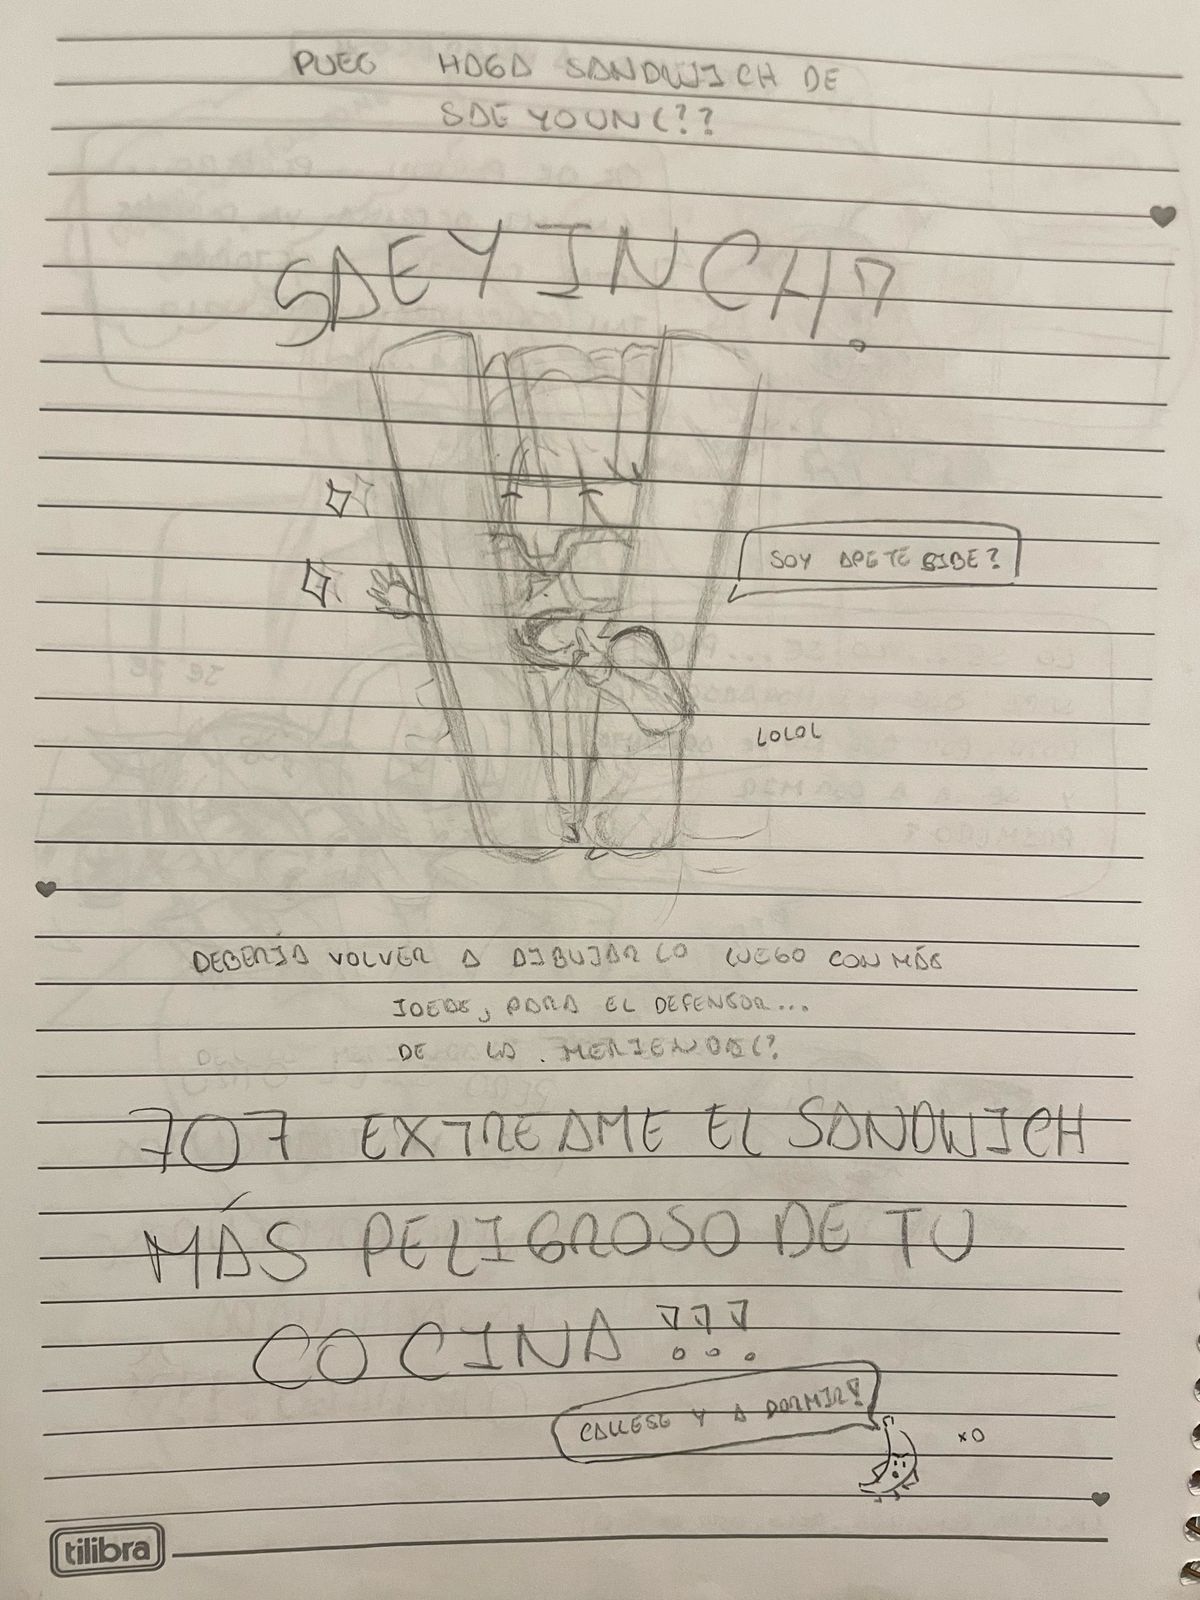 PUES HAGA SANDWICH DE
SAEYOUNG(??
SAEYINCH?
SOY APETESIBE?
LOLOL
DEBERÍA VOLVER A DIBUJARLO LUEGO CON MÁS
IDEAS, PARA EL DEFENSOR...
DE LA MERIENDA(?
707 EXTREAME EL SANDWICH
MÁS PELIGROSO DE TU
COCINA !!!
CALLESE Y A DORMIR!
xD
tilibra